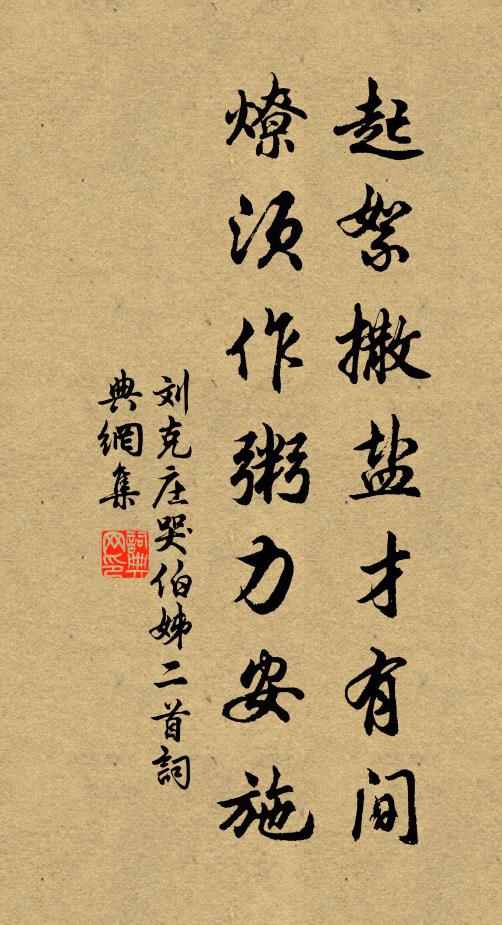 起絮撒盐才有间
燎须作粥力安施
刘克庄哭伯姊二首詞
典網集
詞典
网印